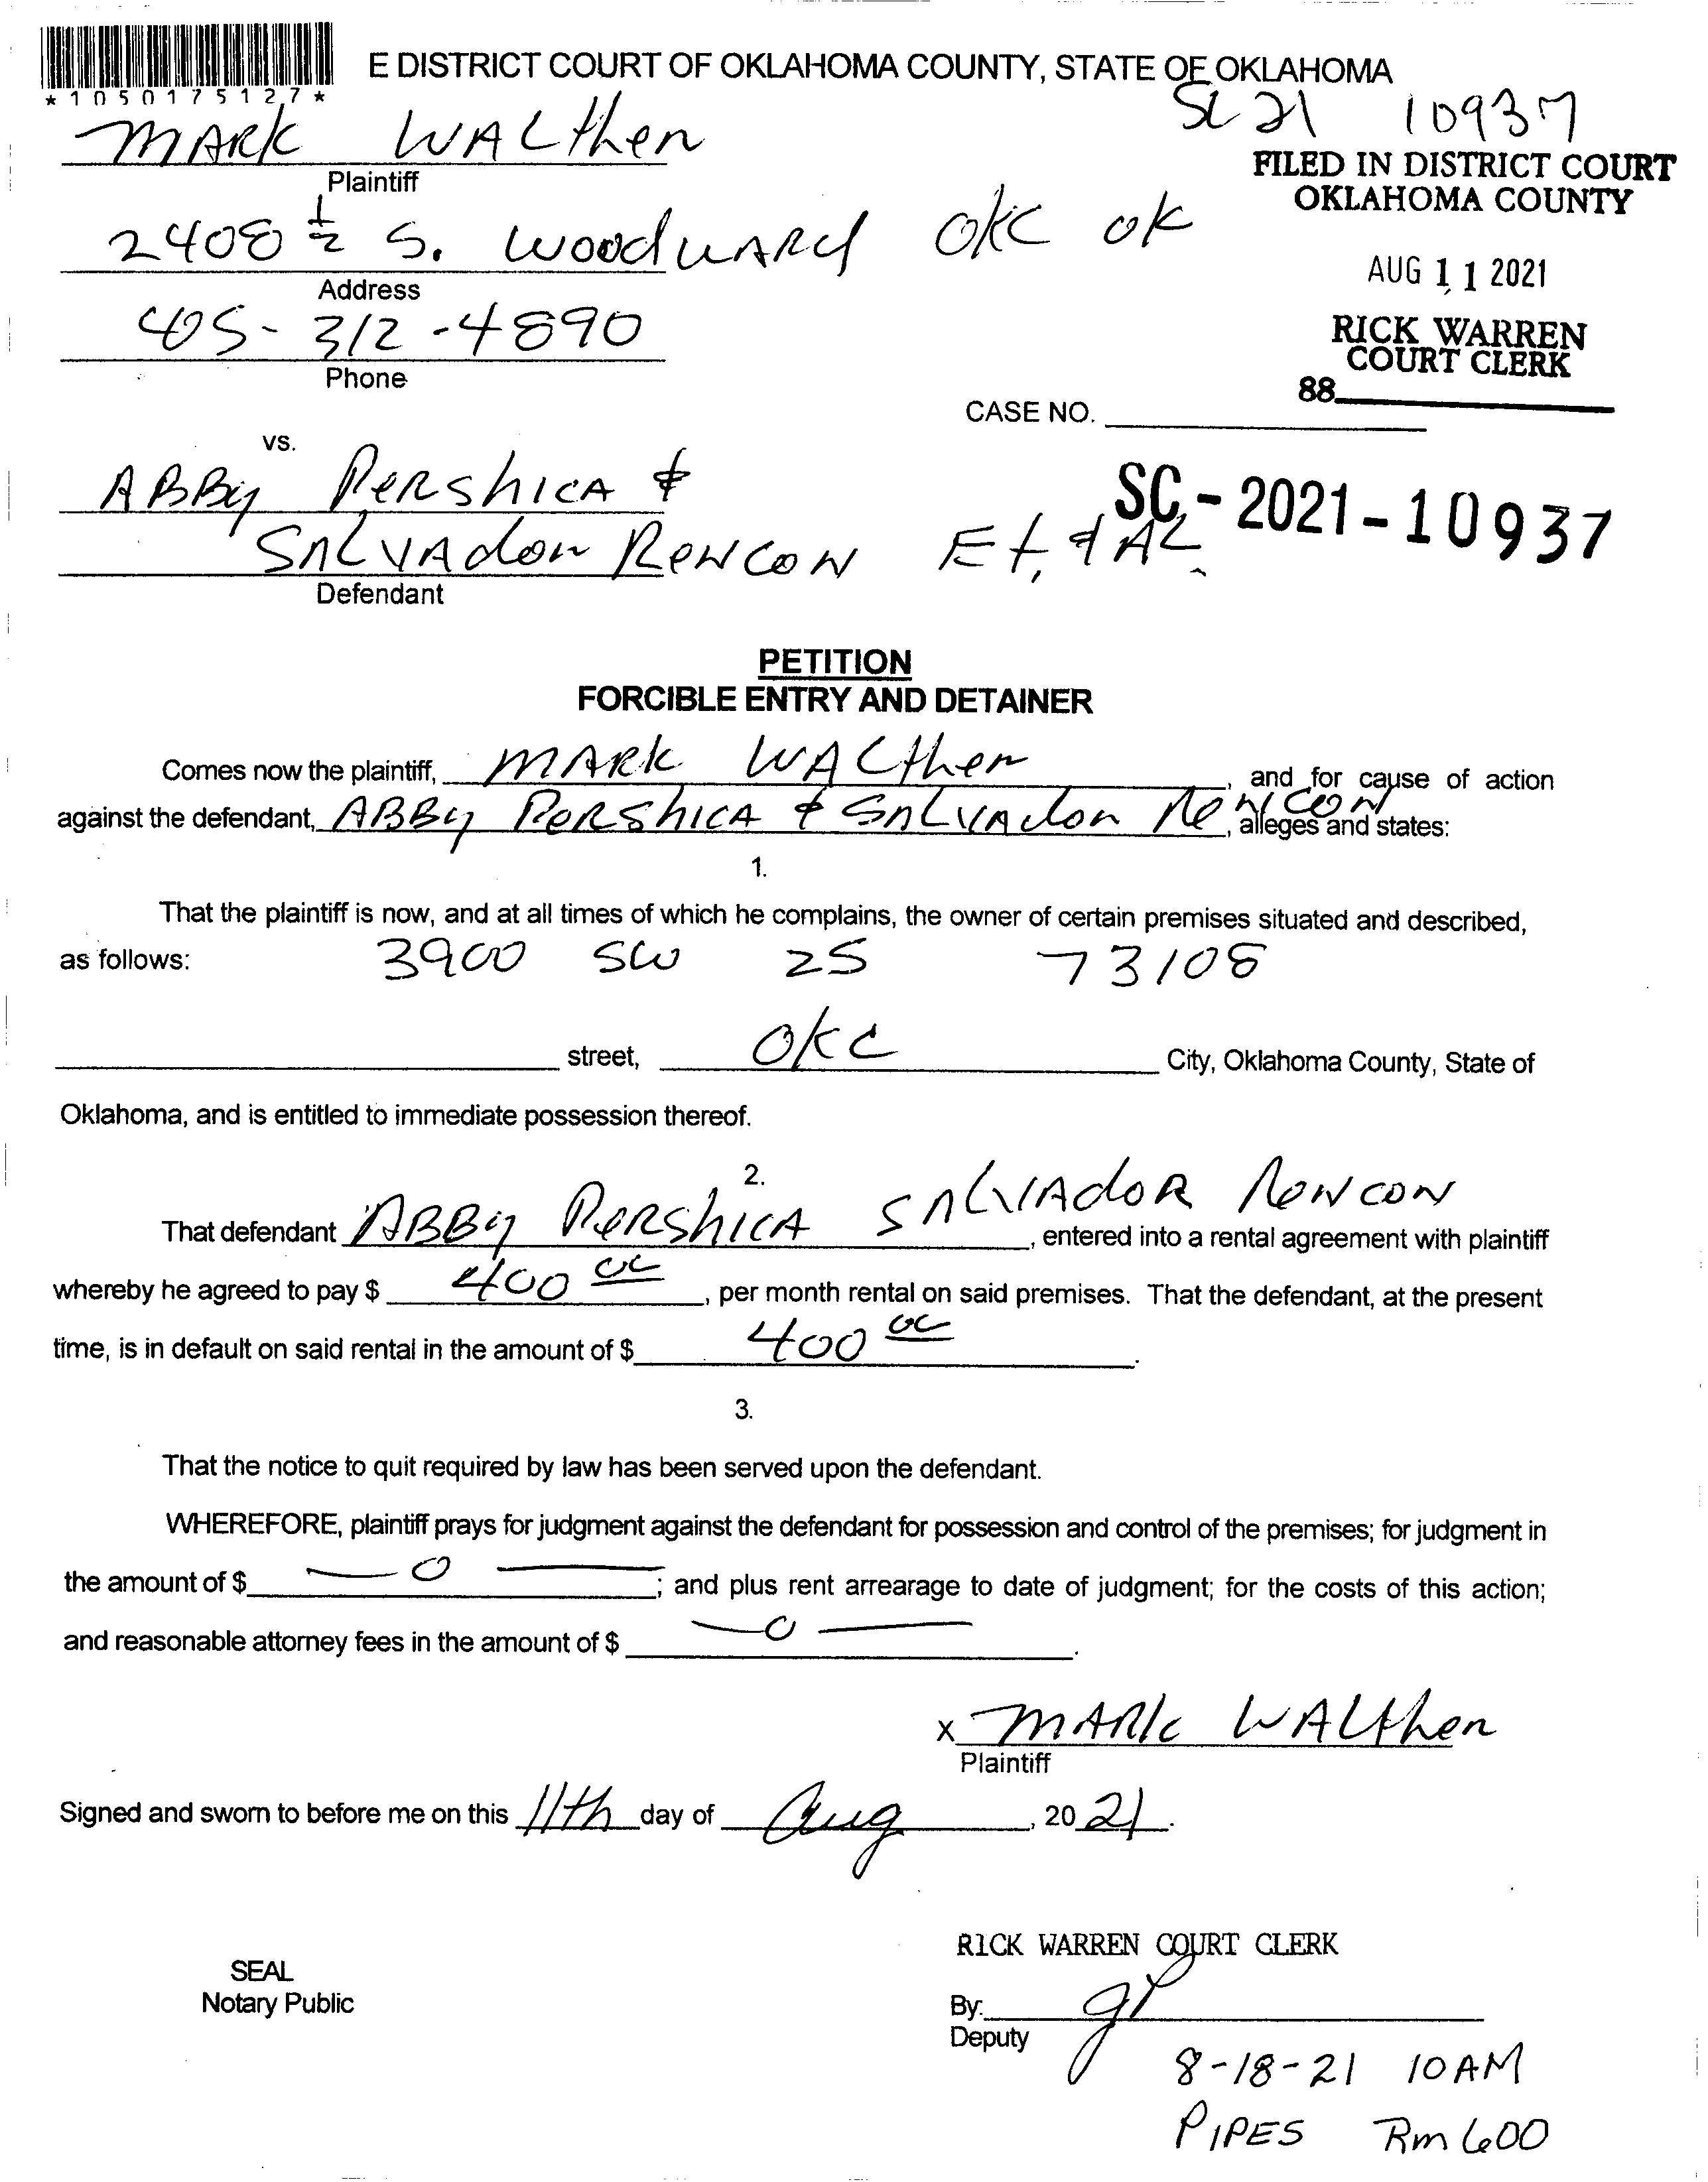 E DISTRICT COURT OF OKLAHOMA COUNTY, STATE OF OKLAHOMA
*1050175127*
SC 21 10937
MARK WALther
Plaintiff
FILED IN DISTRICT COURT
OKLAHOMA COUNTY
2408 1/2 S. WoodWARd OKC OK
Address
AUG 11 2021
405-312-4890
Phone
RICK WARREN
COURT CLERK
88
CASE NO.
vs.
ABBy PeRshicA &
SALVAdor RenCoN Et, & AL.
SC-2021-10937
Defendant
PETITION
FORCIBLE ENTRY AND DETAINER
Comes now the plaintiff, MARK WALther, and for cause of action
against the defendant, ABBy PeRShicA & SALVAdor ReNCON, alleges and states:
1.
That the plaintiff is now, and at all times of which he complains, the owner of certain premises situated and described,
as follows: 3900 SW 25 73108
street, OKC City, Oklahoma County, State of
Oklahoma, and is entitled to immediate possession thereof.
2.
That defendant ABBy PeRshicA SALVAdoR ReNCON, entered into a rental agreement with plaintiff
whereby he agreed to pay $ 400 00, per month rental on said premises. That the defendant, at the present
time, is in default on said rental in the amount of $ 400 00.
3.
That the notice to quit required by law has been served upon the defendant.
WHEREFORE, plaintiff prays for judgment against the defendant for possession and control of the premises; for judgment in
the amount of $ — 0 —; and plus rent arrearage to date of judgment; for the costs of this action;
and reasonable attorney fees in the amount of $ — 0 —.
X MARK WALther
Plaintiff
Signed and sworn to before me on this 11th day of Aug, 20 21.
RICK WARREN COURT CLERK
SEAL
Notary Public
By:
Deputy
8-18-21 10AM
PIPES Rm 600